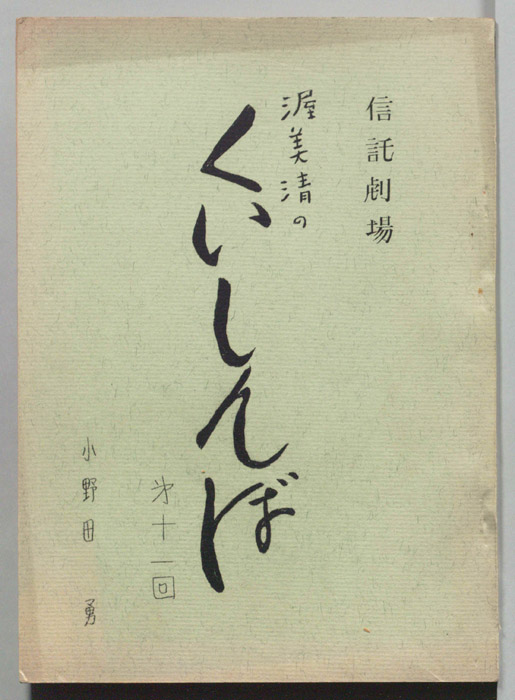 信託劇場
渥美清の
くいしんぼ
第十一回
小野田 勇